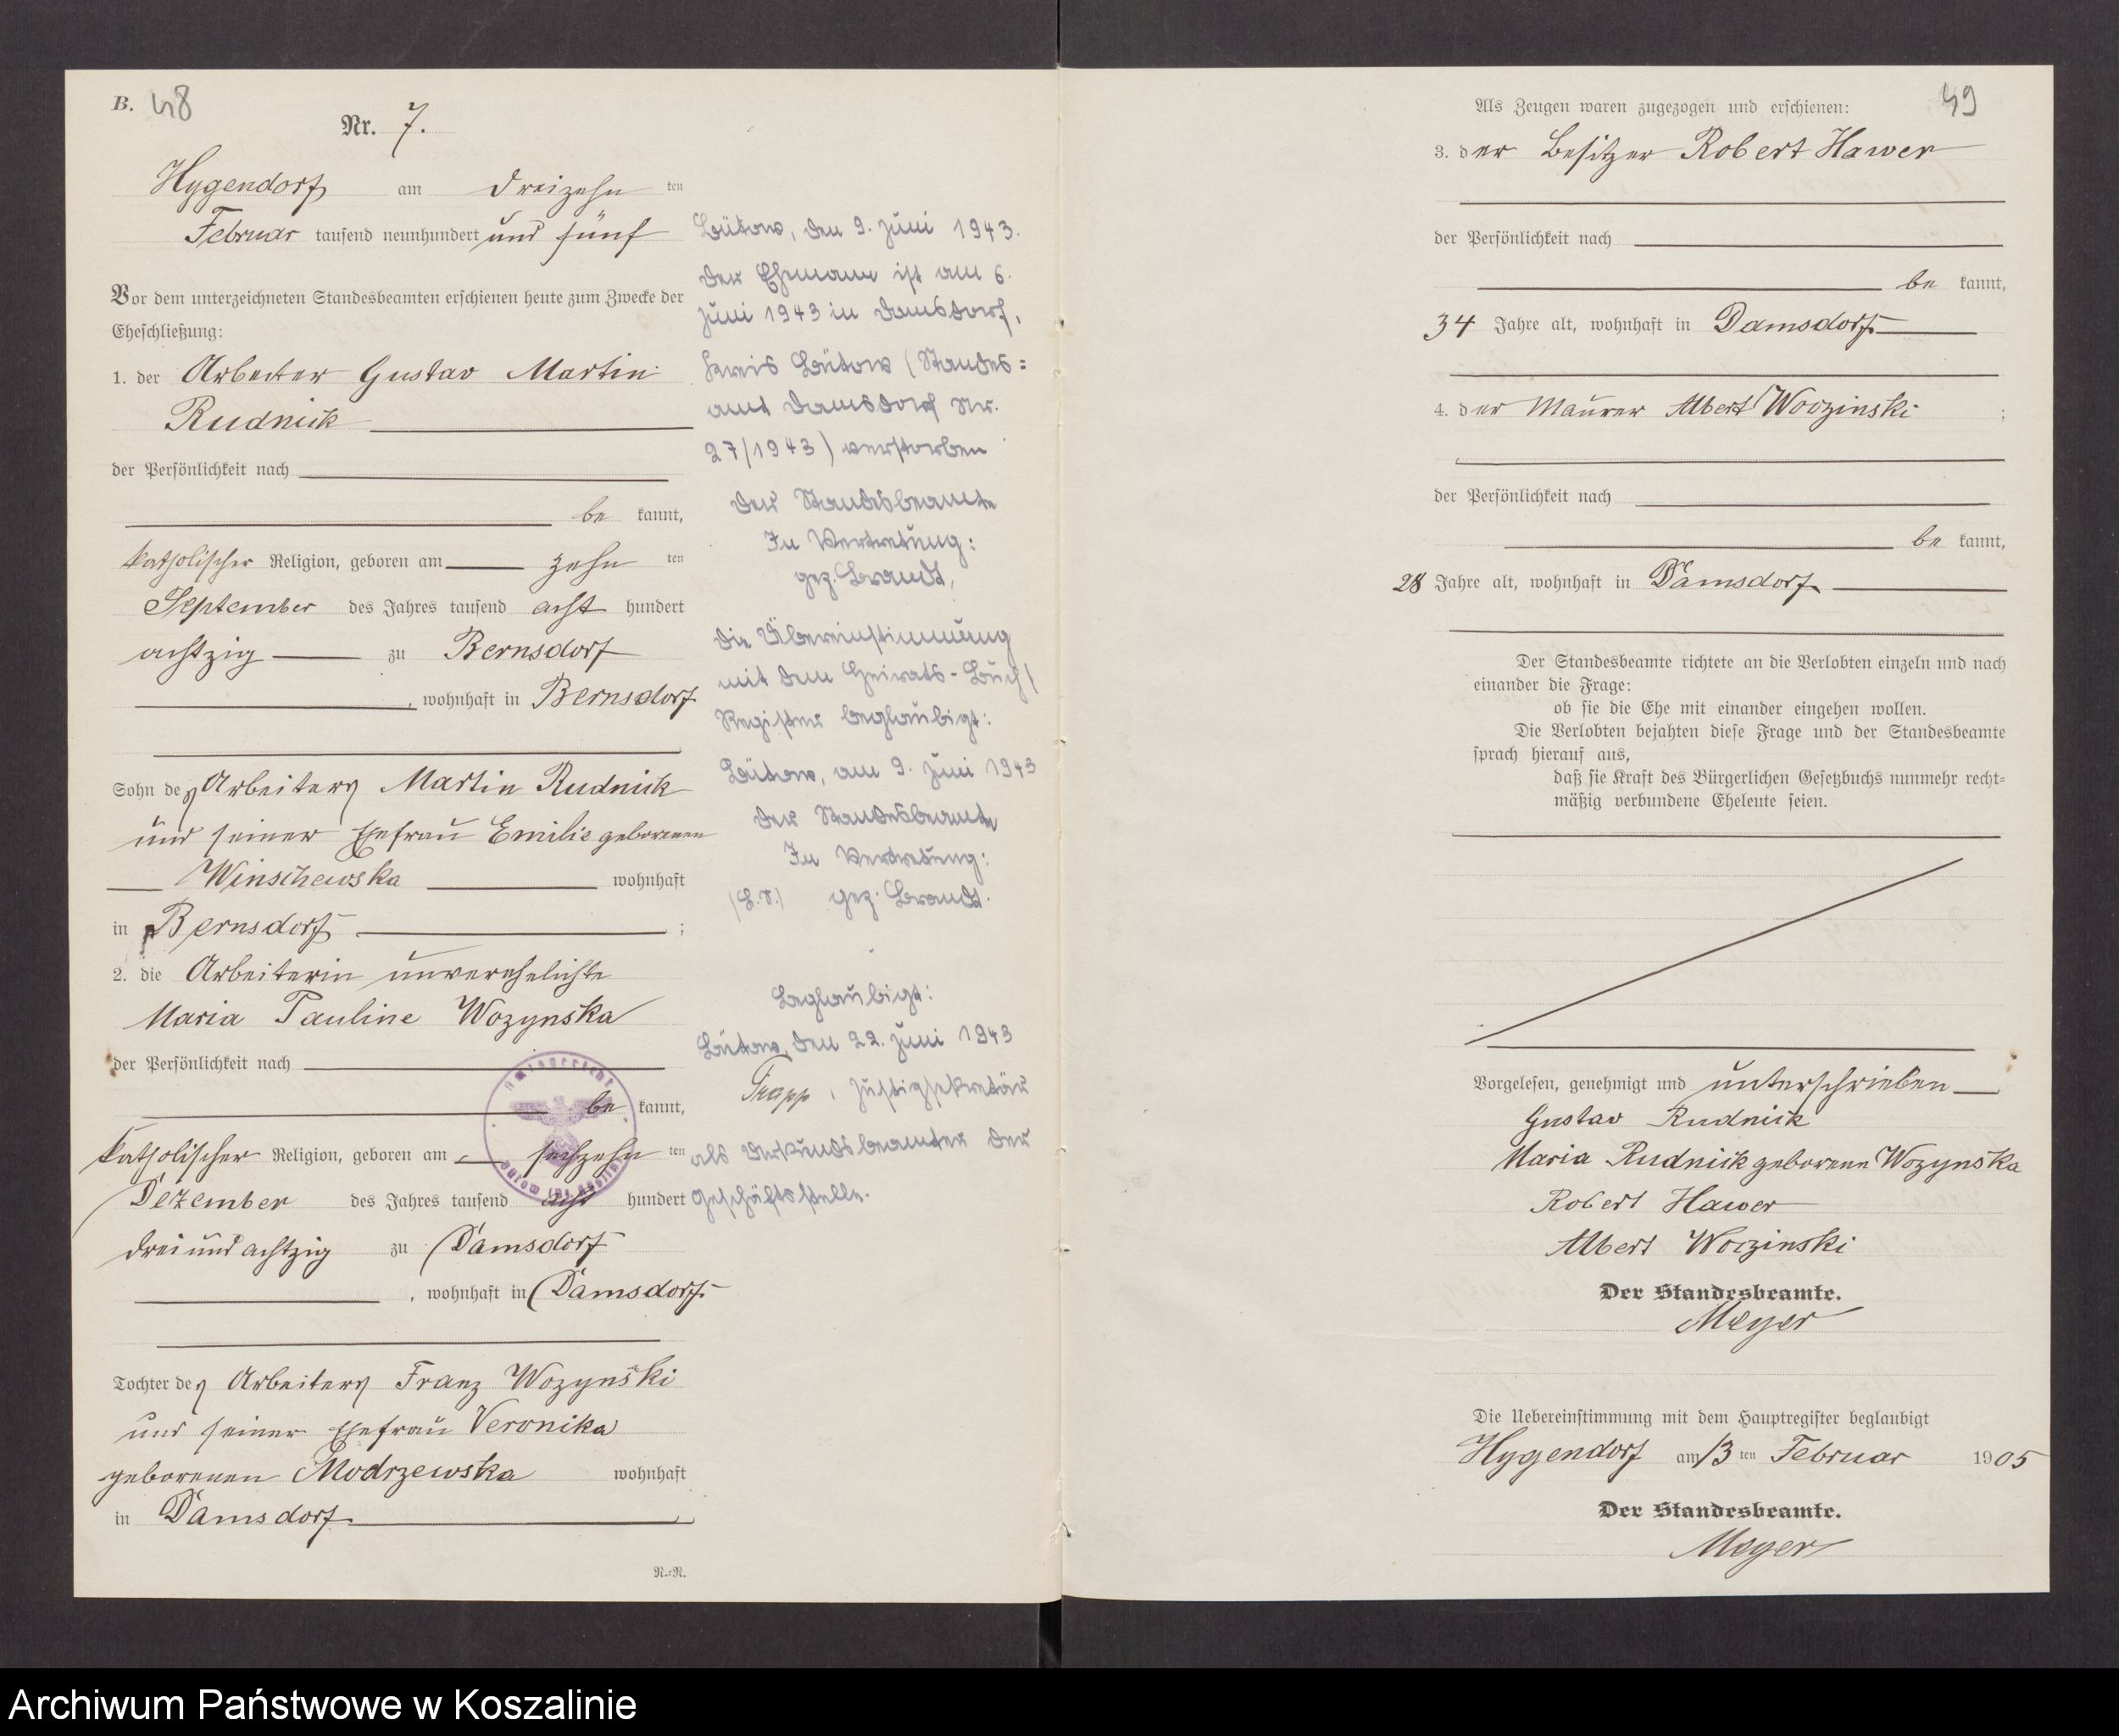 B. 48
Nr. 7.
Hygendorf am dreizehn ten
Februar tausend neunhundert und fünf
Vor dem unterzeichneten Standesbeamten erschienen heute zum Zwecke der
Eheschließung:
1. der Arbeiter Gustav Martin
Rudnick
der Persönlichkeit nach
be kannt,
katholischer Religion, geboren am zehn ten
September des Jahres tausend acht hundert
achtzig zu Bernsdorf
, wohnhaft in Bernsdorf
Sohn des Arbeiters Martin Rudnick
und seiner Ehefrau Emilie geborenen
Winschewska wohnhaft
in Bernsdorf ;
2. die Arbeiterin unverehelichte
Maria Pauline Wozynska
der Persönlichkeit nach
be kannt,
katholischer Religion, geboren am sechzehn ten
Dezember des Jahres tausend acht hundert
drei und achtzig zu Damsdorf
, wohnhaft in Damsdorf
Tochter des Arbeiters Franz Wozynski
und seiner Ehefrau Veronika
geborenen Modrzewska wohnhaft
in Damsdorf
N.=N.
Bütow, den 9. Juni 1943.
Der Ehemann ist am 6.
Juni 1943 in Damsdorf,
Kreis Bütow (Standes=
amt Damsdorf Nr.
27/1943) verstorben
Der Standesbeamte
In Vertretung:
gez. Brandt,
Die Übereinstimmung
mit dem Heirats-Buch/
Register beglaubigt:
Bütow, am 9. Juni 1943
Der Standesbeamte
In Vertretung:
(L.S.) gez. Brandt.
Beglaubigt:
Bütow, den 22. Juni 1943
Trapp, Justizsekretär
als Urkundsbeamter der
Geschäftsstelle.
Amtsgericht
49
Als Zeugen waren zugezogen und erschienen:
3. der Besitzer Robert Hawer
der Persönlichkeit nach
be kannt,
34 Jahre alt, wohnhaft in Damsdorf
4. der Maurer Albert Woczinski ;
der Persönlichkeit nach
be kannt,
28 Jahre alt, wohnhaft in Damsdorf
Der Standesbeamte richtete an die Verlobten einzeln und nach
einander die Frage:
ob sie die Ehe mit einander eingehen wollen.
Die Verlobten bejahten diese Frage und der Standesbeamte
sprach hierauf aus,
daß sie kraft des Bürgerlichen Gesetzbuchs nunmehr recht=
mäßig verbundene Eheleute seien.
Vorgelesen, genehmigt und unterschrieben
Gustav Rudnick
Maria Rudnick geborene Wozynska
Robert Hawer
Albert Woczinski
Der Standesbeamte.
Meyer
Die Uebereinstimmung mit dem Hauptregister beglaubigt
Hygendorf am 13 ten Februar 1905
Der Standesbeamte.
Meyer
Archiwum Państwowe w Koszalinie